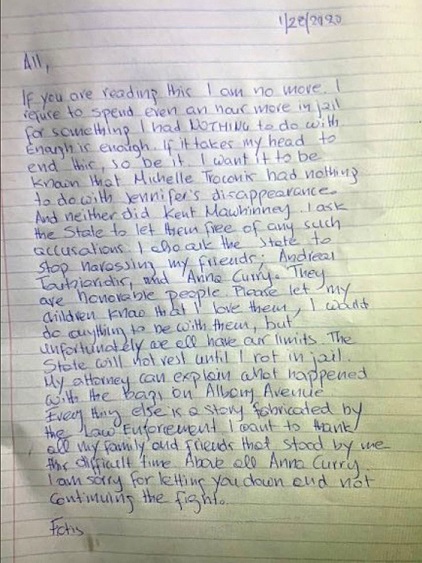 1/28/2020
All,
If you are reading this I am no more. I
refuse to spend even an hour more in jail
for something I had NOTHING to do with
Enough is enough. If it takes my head to
end this, so be it. I want it to be
known that Michelle Troconis had nothing
to do with Jennifer's disappearance.
And neither did Kent Mawhinney. I ask
the State to let them free of any such
accusations. I also ask the State to
stop harassing my friends; Andreas
Toutziaridis, and Anna Curry. They
are honorable people. Please let my
children know that I love them, I would
do anything to be with them, but
unfortunately we all have our limits. The
State will not rest until I rot in jail.
My attorney can explain what happened
with the bags on Albany Avenue
Everything else is a story fabricated by
the Law Enforcement I want to thank
all my family and friends that stood by me
this difficult time Above all Anna Curry.
I am sorry for letting you down and not
continuing the fight.
Fotis